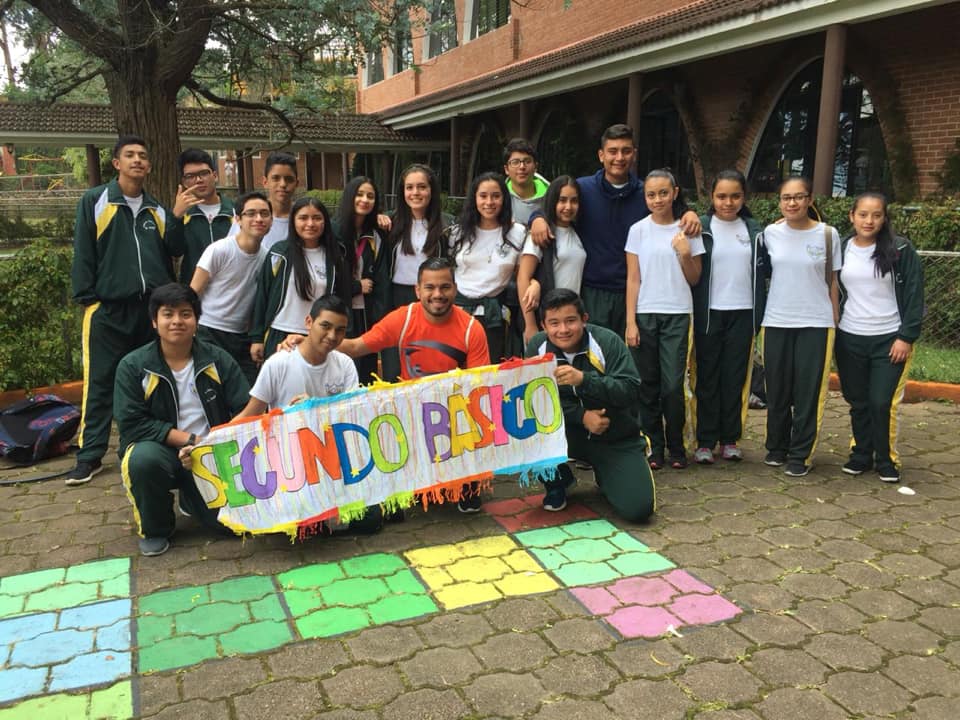 SECUNDO BÁSICO